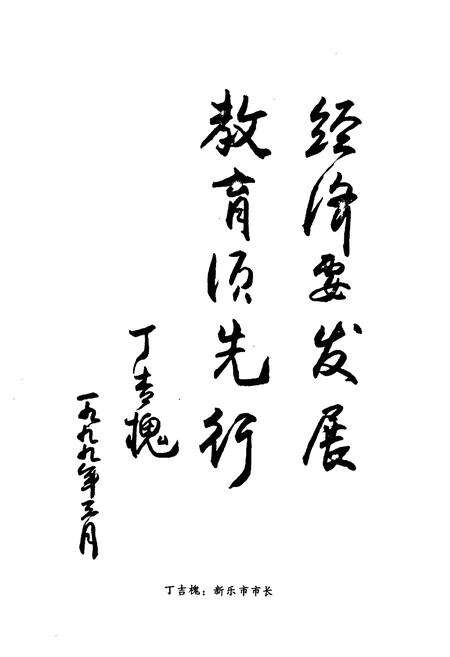 经济要发展
教育须先行
丁吉槐
一九九九年三月
丁吉槐：新乐市市长